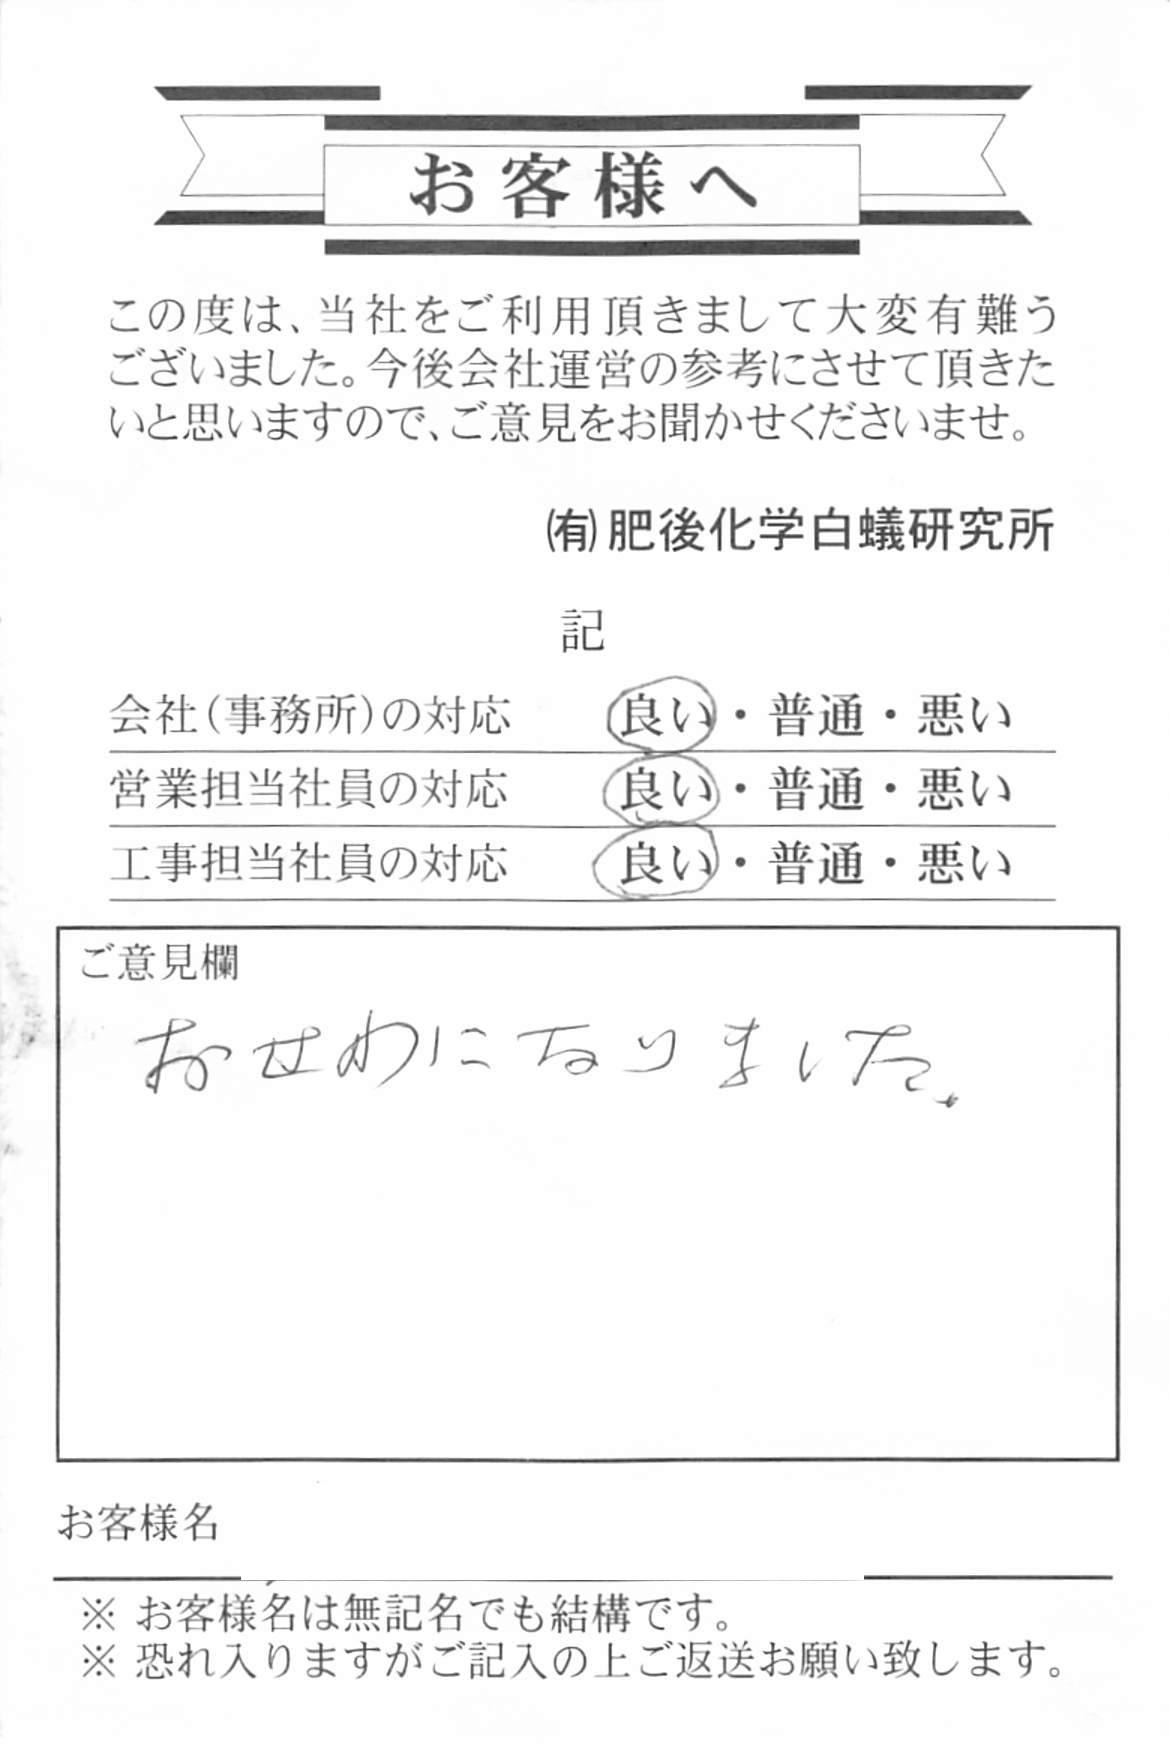 お客様へ
この度は、当社をご利用頂きまして大変有難う
ございました。今後会社運営の参考にさせて頂きた
いと思いますので、ご意見をお聞かせくださいませ。
㈲肥後化学白蟻研究所
記
会社(事務所)の対応 良い・普通・悪い
営業担当社員の対応 良い・普通・悪い
工事担当社員の対応 良い・普通・悪い
ご意見欄
おせわになりました。
お客様名
※ お客様名は無記名でも結構です。
※ 恐れ入りますがご記入の上ご返送お願い致します。